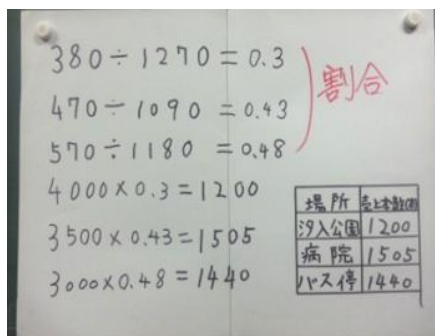 380÷1270=0.3
470÷1090=0.43
570÷1180=0.48
割合
4000×0.3=1200
3500×0.43=1505
3000×0.48=1440
場所 売上本数(本)
汐入公園 1200
病院 1505
バス停 1440